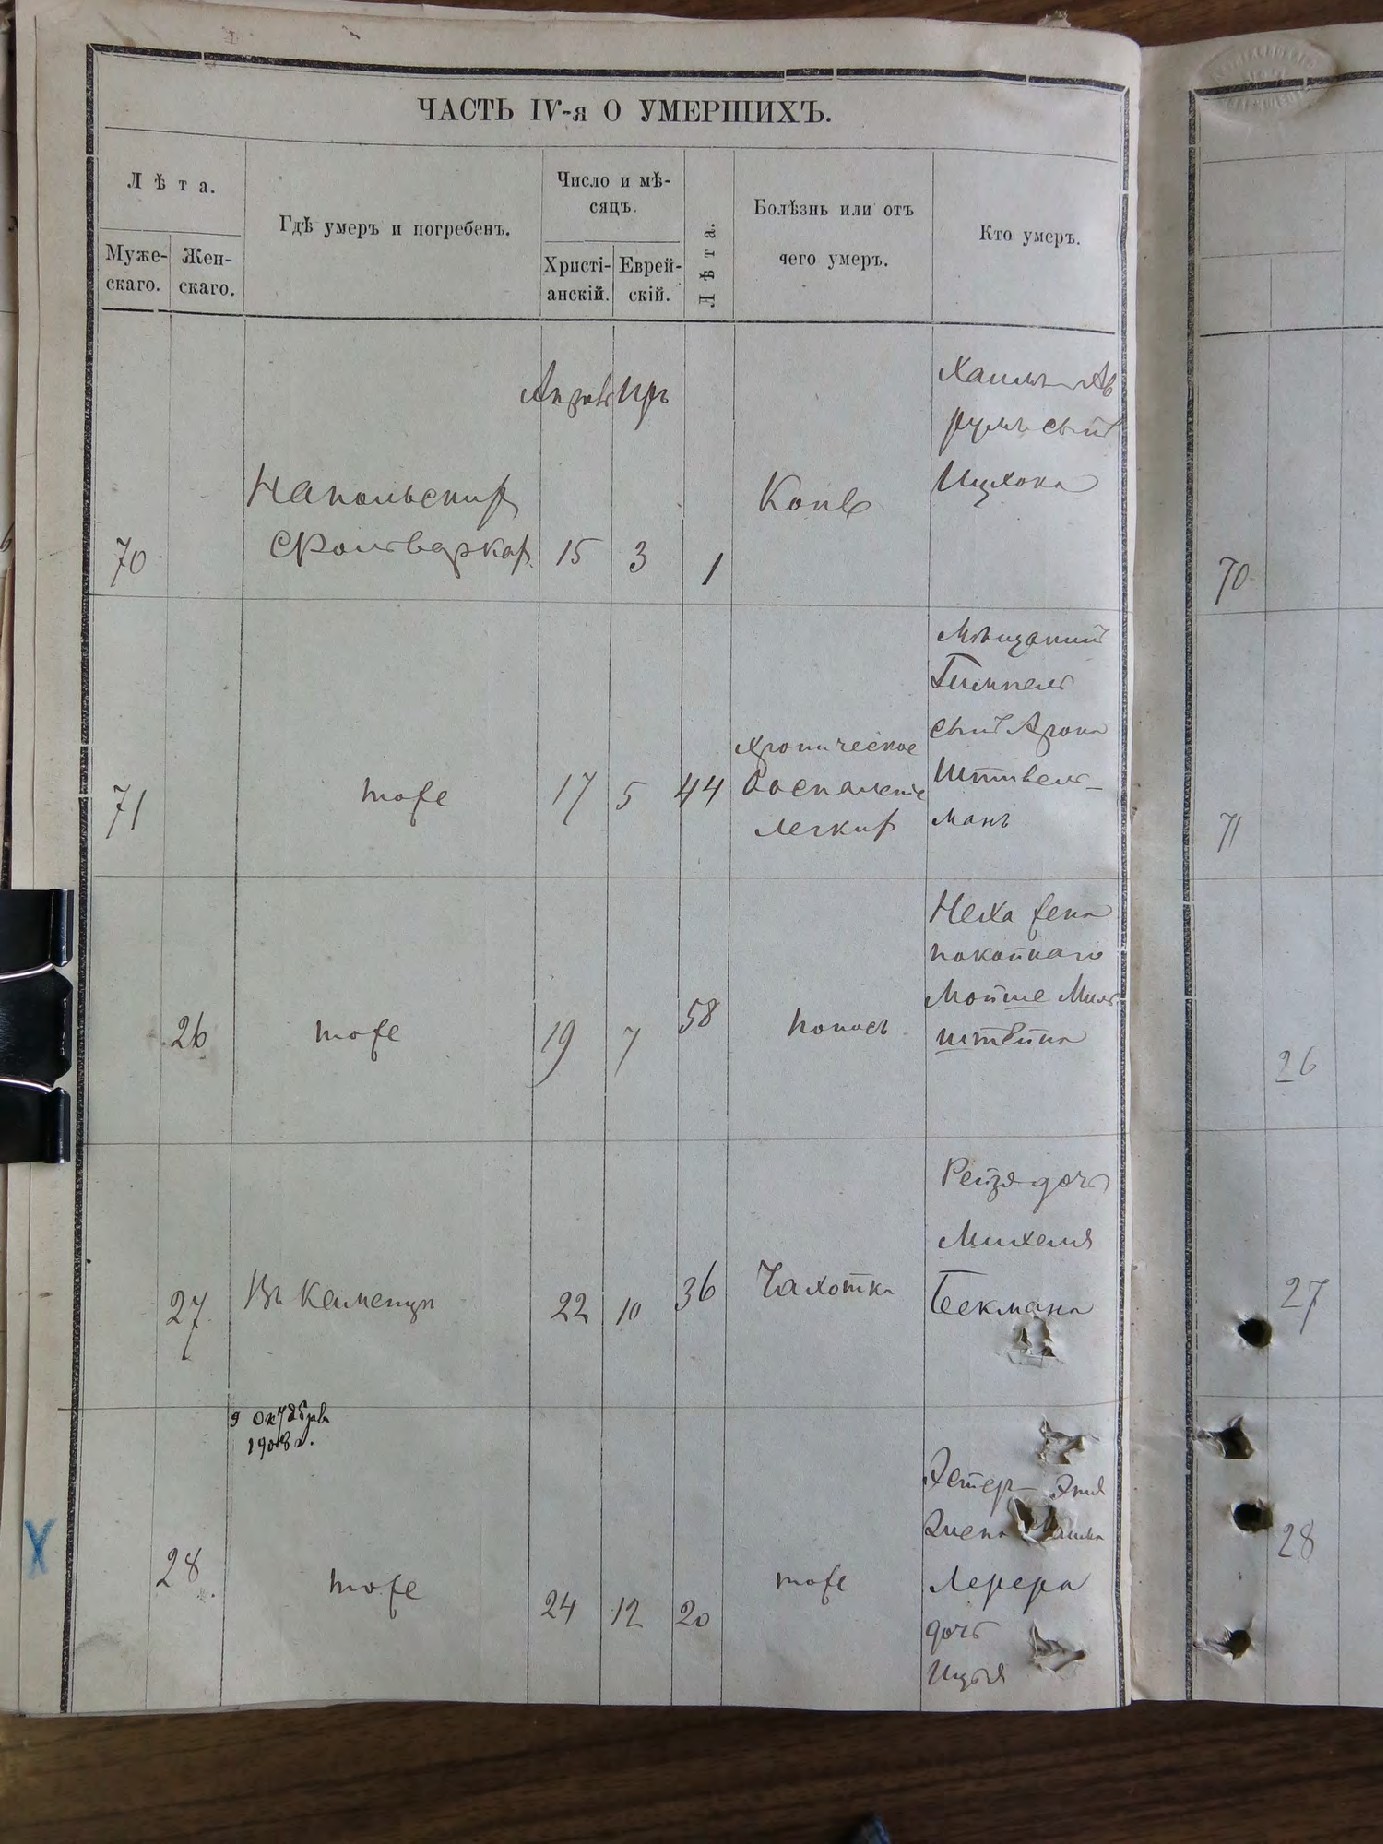 ЧАСТЬ IV-я О УМЕРШИХЪ.
Лѣта.
Муже-
скаго.
Жен-
скаго.
Гдѣ умеръ и погребенъ.
Число и мѣ-
сяцъ.
Христі-
анскій.
Еврей-
скій.
Лѣта.
Болѣзнь или отъ
чего умеръ.
Кто умеръ.
70
Напольских
Фольварках
Апрель Иръ
15
3
1
Корь
Хаимъ Ав
румъ сынъ
Ицхока
70
71
тоже
17
5
44
Хроническое
Воспаление
легких
Мѣщанинъ
Гимпель
сынъ Арона
Штивель-
манъ
71
26
тоже
19
7
58
поносъ
Неха жена
покойнаго
Мойше Миль
штейна
26
27
Въ Каменцѣ
22
10
36
Чахотка
Рейзя дочь
Михеля
Бекмана
27
9 октября
1908 г.
X
28
тоже
24
12
20
тоже
Эстер
жена
Лерера
дочь
Ицыя
28